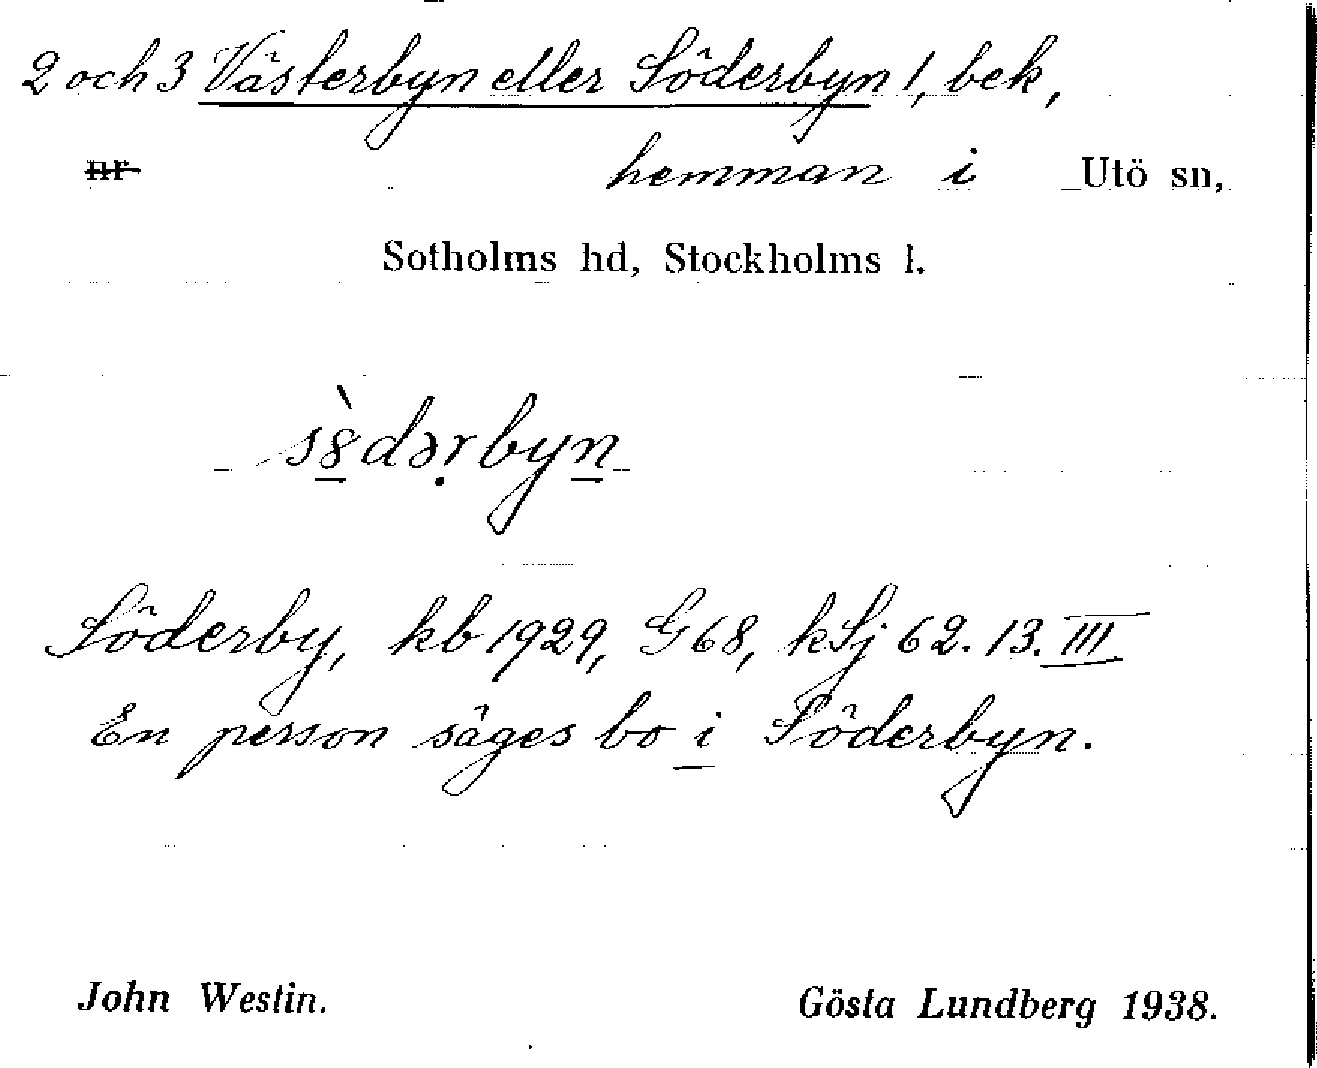 2 och 3 Västerbyn eller Söderbyn 1, bek,
nr hemman i Utö sn,
Sotholms hd, Stockholms l.
s8̀dərbyn
Söderby, kb 1929, G68, kSj 62.13.III
En person säges bo i Söderbyn.
John Westin. Gösta Lundberg 1938.